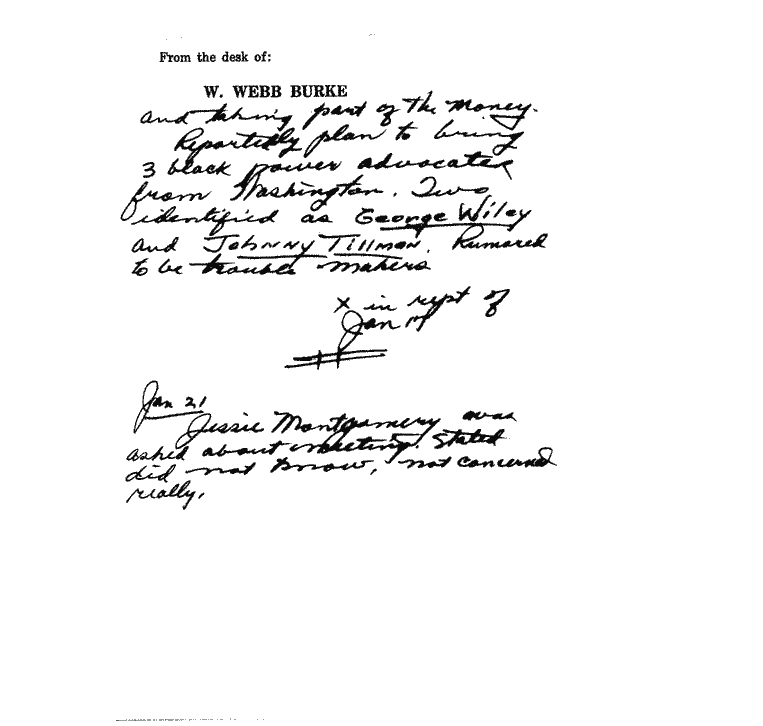 From the desk of:
W. WEBB BURKE
and taking part of the money.
Reportedly plan to bring
3 black power advocates
from Washington. Two
identified as George Wiley
and Johnny Tillmon. Rumored
to be trouble makers
x in rept of
Jan 17
Jan 21
Jessie Montgomery was
asked about meeting. Stated
did not know, not concerned
really.